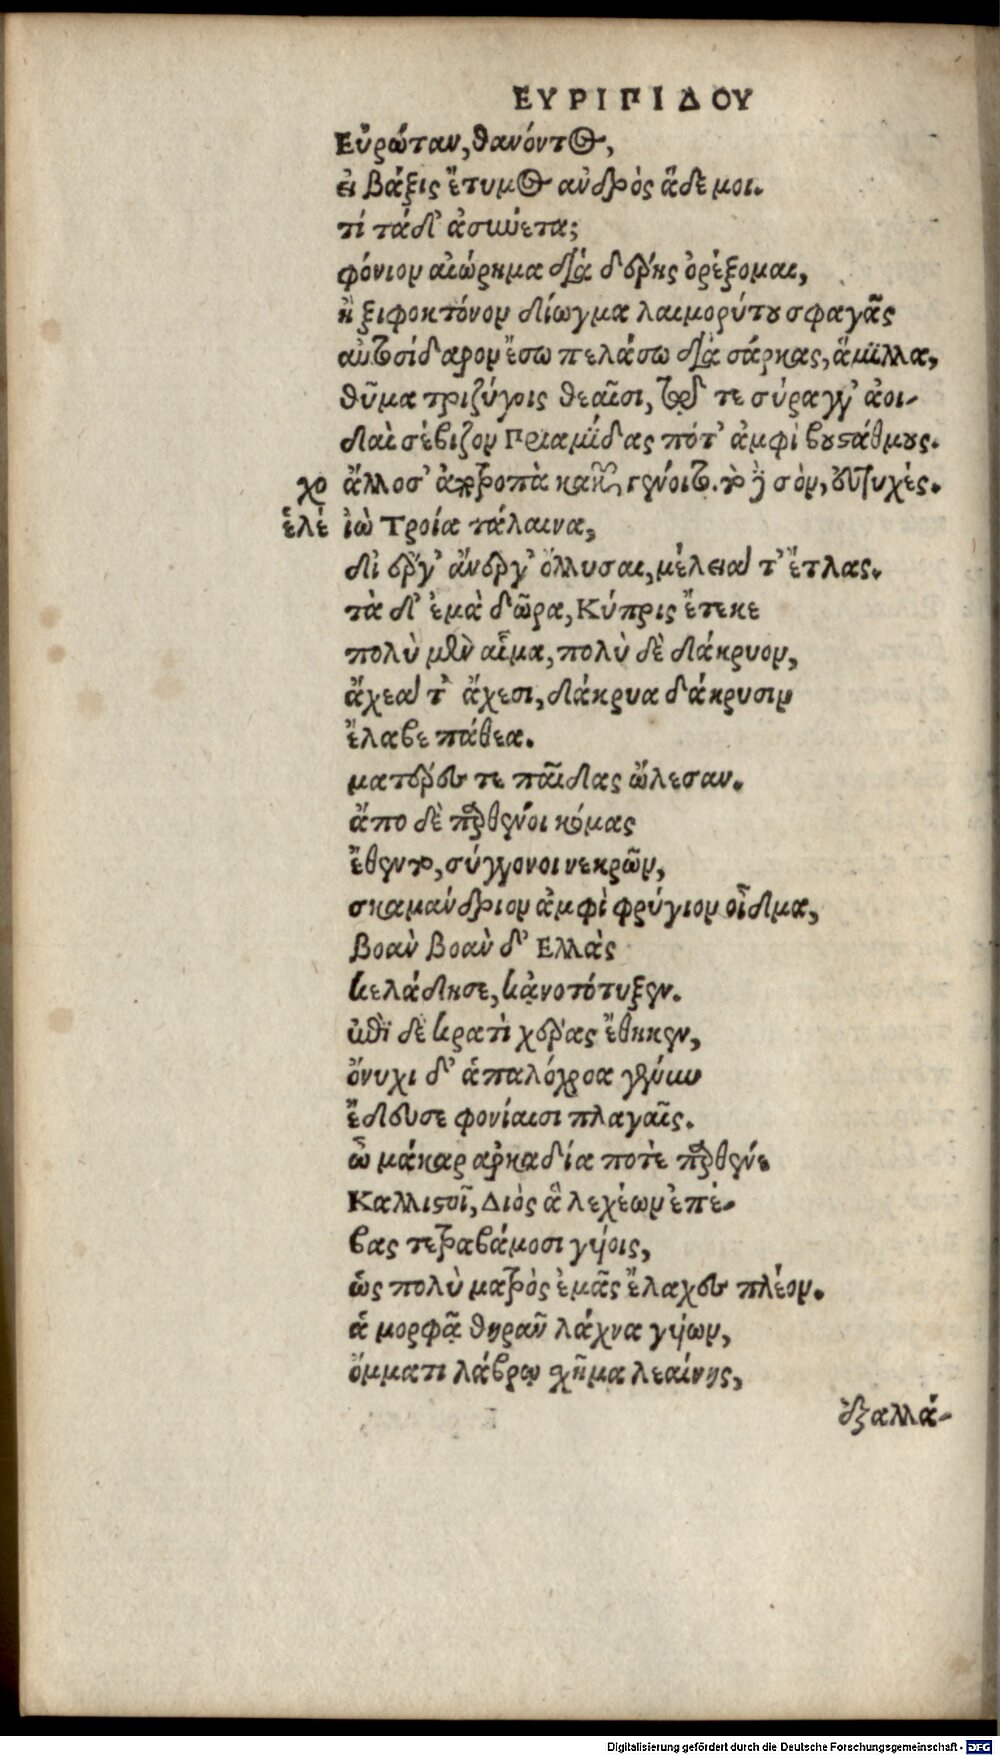 ΕΥΡΙΠΙΔΟΥ
Εὐρώταν, θανόντος,
εἰ βάξις ἔτυμος ἀνδρὸς ἅδε μοι.
τί τάδ' ἀσύνετα;
φόνιον αἰώρημα διὰ δέρης ὀρέξομαι,
ἢ ξιφοκτόνον δίωγμα λαιμορύτου σφαγᾶς
αὐτοσίδαρον ἔσω πελάσω διὰ σάρκας, ἅμιλλα,
θῦμα τριζύγοις θεαῖσι, τῷ τε σύραγγ' ἀοι-
δαὶ σέβιζον Πριαμίδας πότ' ἀμφὶ βουστάθμους.
χο ἄλλοσ' ἀποτροπὰ κακῶν γένοιτο. τὸ δὲ σὸν, εὐτυχές.
ἑλέ ἰὼ Τροία τάλαινα,
δι' ἔργ' ἄνεργ' ὄλλυσαι, μέλεά τ' ἔτλας.
τὰ δ' ἐμὰ δῶρα, Κύπρις ἔτεκε
πολὺ μὲν αἷμα, πολὺ δὲ δάκρυον,
ἄχεά τ' ἄχεσι, δάκρυα δάκρυσιν
ἔλαβε πάθεα.
ματέρες τε παῖδας ὤλεσαν.
ἄπο δὲ παρθένοι κόμας
ἔθεντο, σύγγονοι νεκρῶν,
σκαμάνδριον ἀμφὶ φρύγιον οἶδμα,
βοὰν βοὰν δ' Ελλὰς
κελάδησε, κἀνοτότυξεν.
ἐπὶ δὲ κρατὶ χέρας ἔθηκεν,
ὄνυχι δ' ἁπαλόχροα γένυν
ἔδευσε φονίαισι πλαγαῖς.
ὦ μάκαρ ἀρκαδία ποτὲ παρθένε
Καλλιστοῖ, Διὸς ἃ λεχέων ἐπέ-
βας τετραβάμοσι γυίοις,
ὡς πολὺ ματρὸς ἐμᾶς ἔλαχες πλέον.
ἁ μορφᾷ θηρᾶν λάχνα γυίων,
ὄμματι λάβρῳ σχῆμα λεαίνης,
ἐξαλλά-
Digitalisierung gefördert durch die Deutsche Forschungsgemeinschaft - DFG